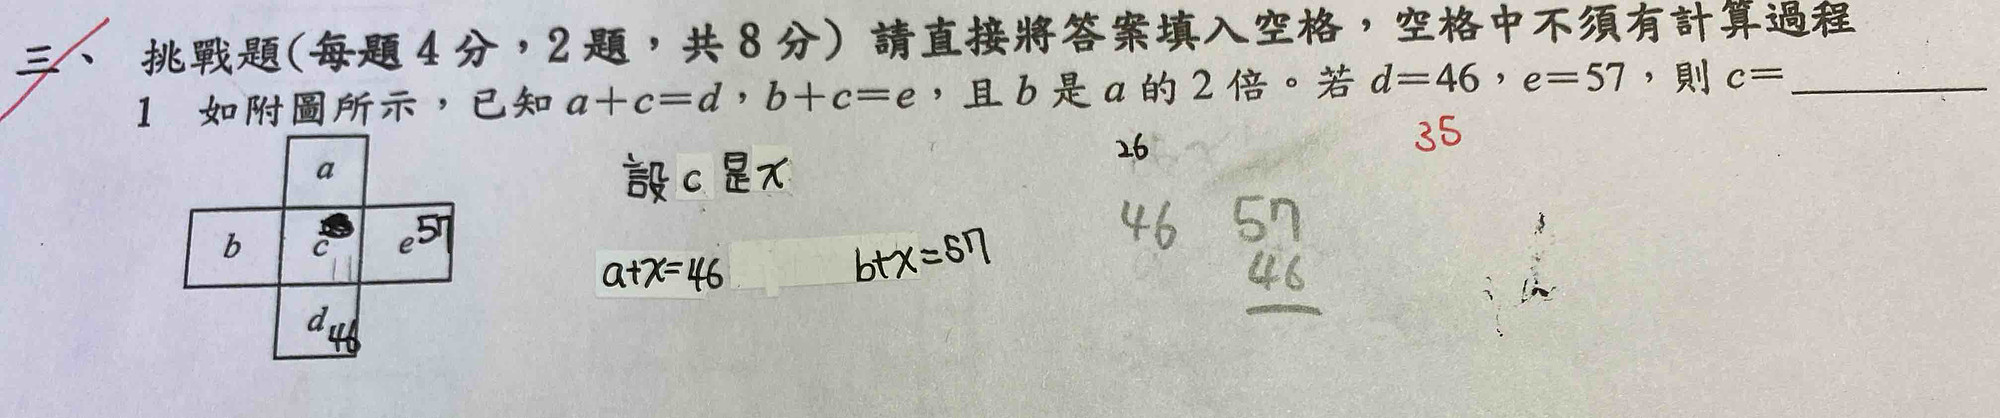 三、 挑戰題(每題 4 分，2 題，共 8 分) 請直接將答案填入空格，空格中不須有計算過程
1 如附圖所示，已知 a＋c＝d，b＋c＝e，且 b 是 a 的 2 倍。若 d＝46，e＝57，則 c＝
35
26
a
設 c 是 x
46 57
b c e 57
a+x=46 b+x=57
46
d 46